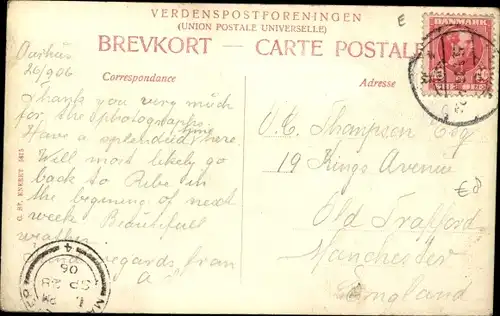 VERDENSPOSTFORENINGEN
(UNION POSTALE UNIVERSELLE)
BREVKORT — CARTE POSTALE
Correspondance
Adresse
DANMARK
E
Aarhus
26/9 06
Thanks you very much
for the photographs.
Have a splendied time here.
Will most likely go
back to Ribe in
the begining of next
week. Beautifull
weather.
regards from
A
Thompson Esq
19 Kings Avenue
Old Trafford
Manchester
England
€8
4
1 PM
SP 28
06